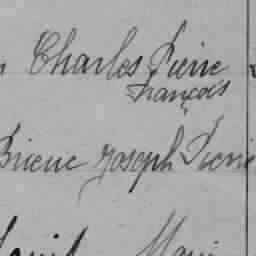 Charles Pierre
François
Brieuc Joseph Pierre
Marie